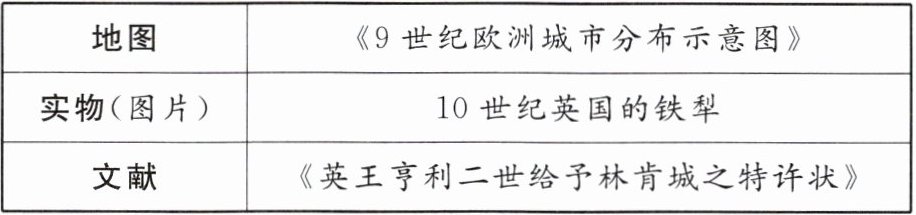 地图 《9 世纪欧洲城市分布示意图》
实物(图片) 10 世纪英国的铁犁
文献 《英王亨利二世给予林肯城之特许状》